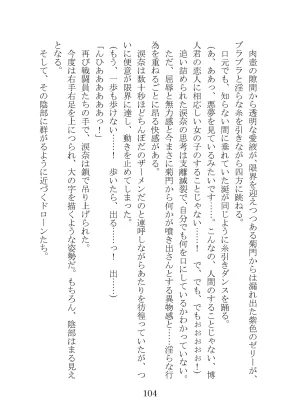 肉壺の隙間から透明な愛液が、限界を迎えつつある菊門からは漏れ出た紫色のゼリーが、
プラプラと淫らな糸を引きながら四方に跳ねる。
口元でも、知らない間に垂れていた涎が同じように糸引きダンスを踊る。
(あ、ああっ、悪夢を見ているみたいです……。こんなの、人間のすることじゃない、博
人君の恋人に相応しい女の子のすることじゃない……！　で、でも、でもぉぉぉぉ！)
追い詰められた涙奈の思考は支離滅裂で、自分でも何を口にしているかわかっていない。
ただ、屈辱と無力感と今まさに菊門から何かが噴き出さんとする異物感と……淫らな行
為を重ねるごとに昂る快感がある。
涙奈は数十分ほどちんぽだのザーメンだのと連呼しながらあたりを彷徨っていたが、つ
いに便意が限界に達し、動きを止めてしまった。
(もう、一歩も歩けない……！　歩いたら、出る……っ！　出……)
「ひああああああっ！」
再び戦闘員たちの手で、涙奈は鎖で吊り上げられた。
今度は右手右足を上につられ、大の字を描くような姿勢だ。もちろん、陰部はまる見え
となる。
そして、その陰部に群がるように近づくドローンたち。
104